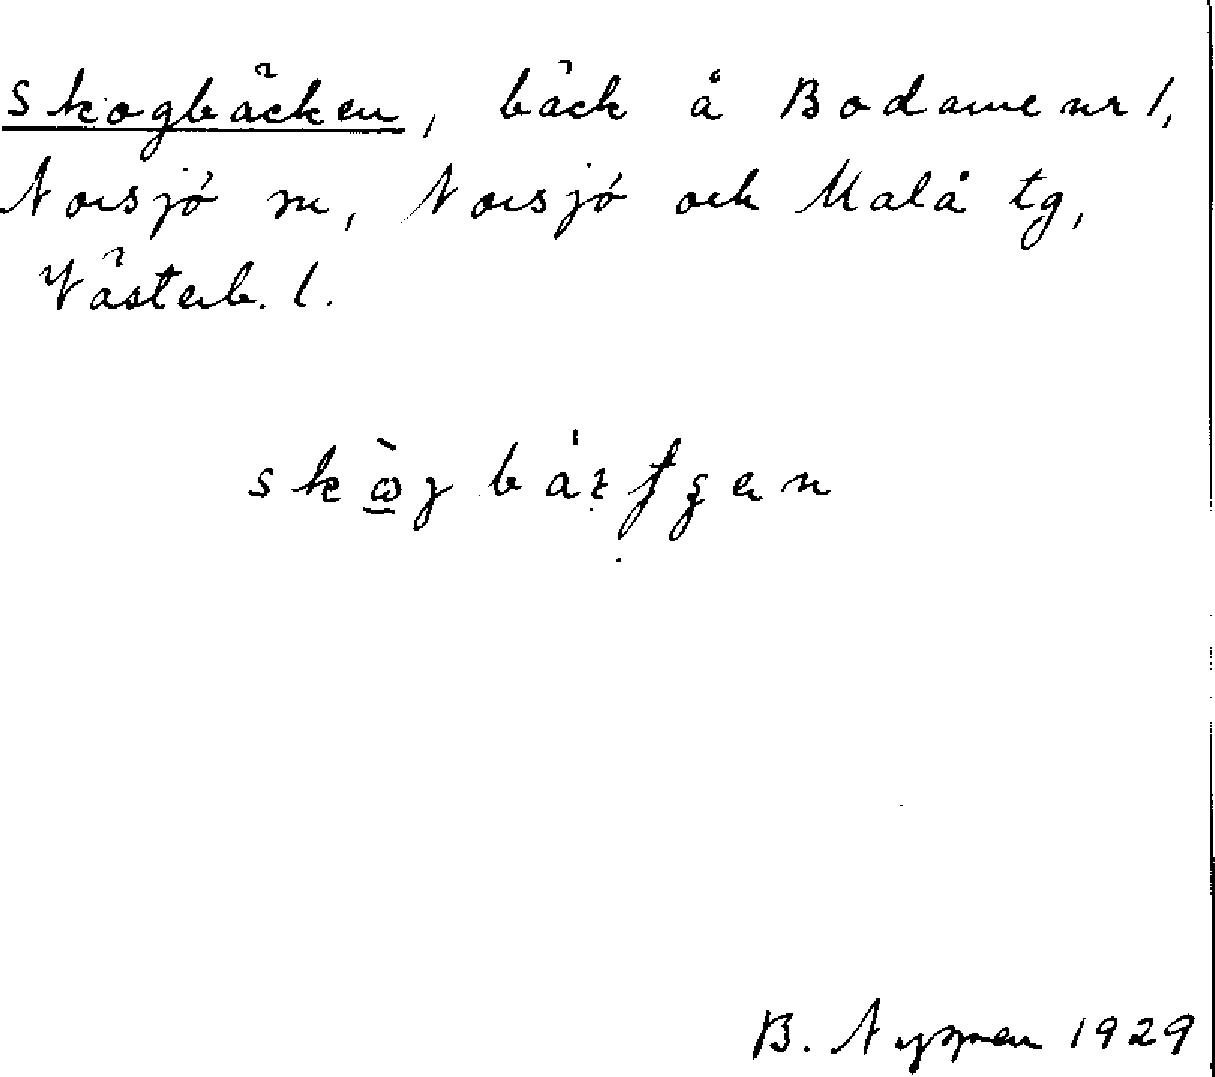 Skogbäcken, bäck å Bodarne nr 1,
Norsjö sn, Norsjö och Malå tg,
Västerb. l.
B. 1929